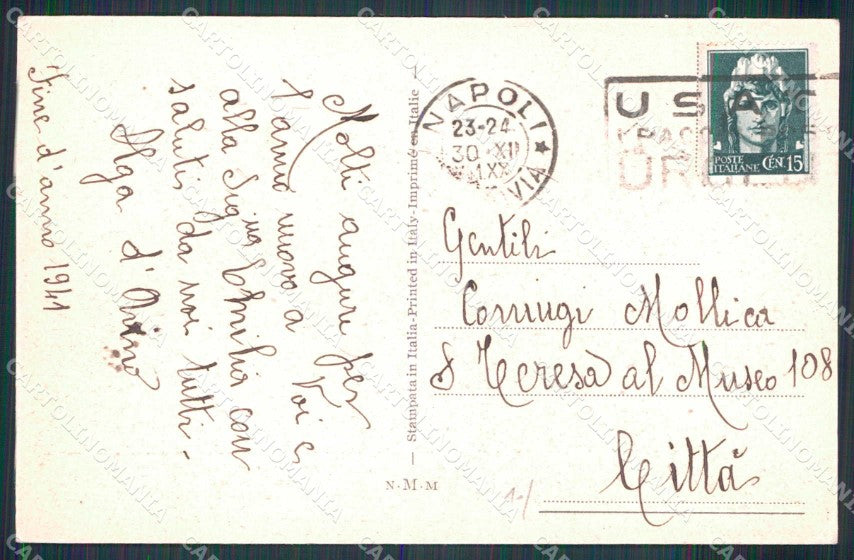 Molti auguri per
l'anno nuovo a Voi e
alla Sig.na Emilia con
saluti da noi tutti.
Olga d'
Fine d'anno 1941
Stampata in Italia-Printed in Italy-Imprimé en Italie
N·M·M
NAPOLI
23-24
30 XII
XX
FERROVIA
USATE
POSTE
ITALIANE CENT. 15
Gentili
Coniugi Mollica
S Teresa al Museo 108
Città